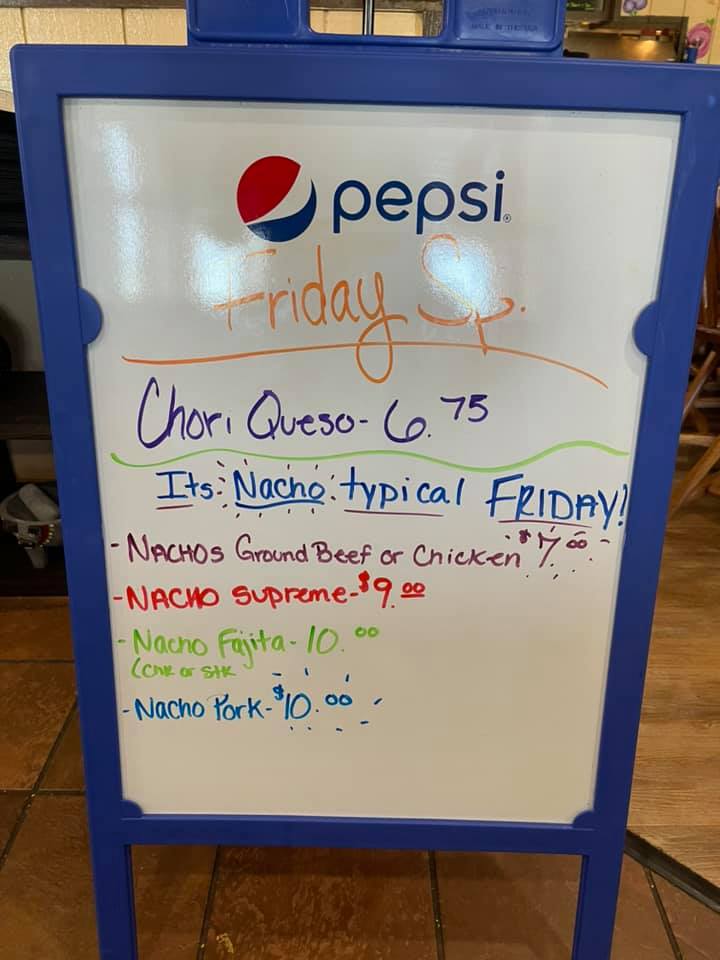 pepsi
Friday Sp.
Chori Queso- 6.75
Its Nacho typical FRIDAY!
- NACHOS Ground Beef or Chicken $7.00 -
- NACHO Supreme- $9.00
- Nacho Fajita- 10.00
(Chk or Stk
- Nacho Pork- $10.00